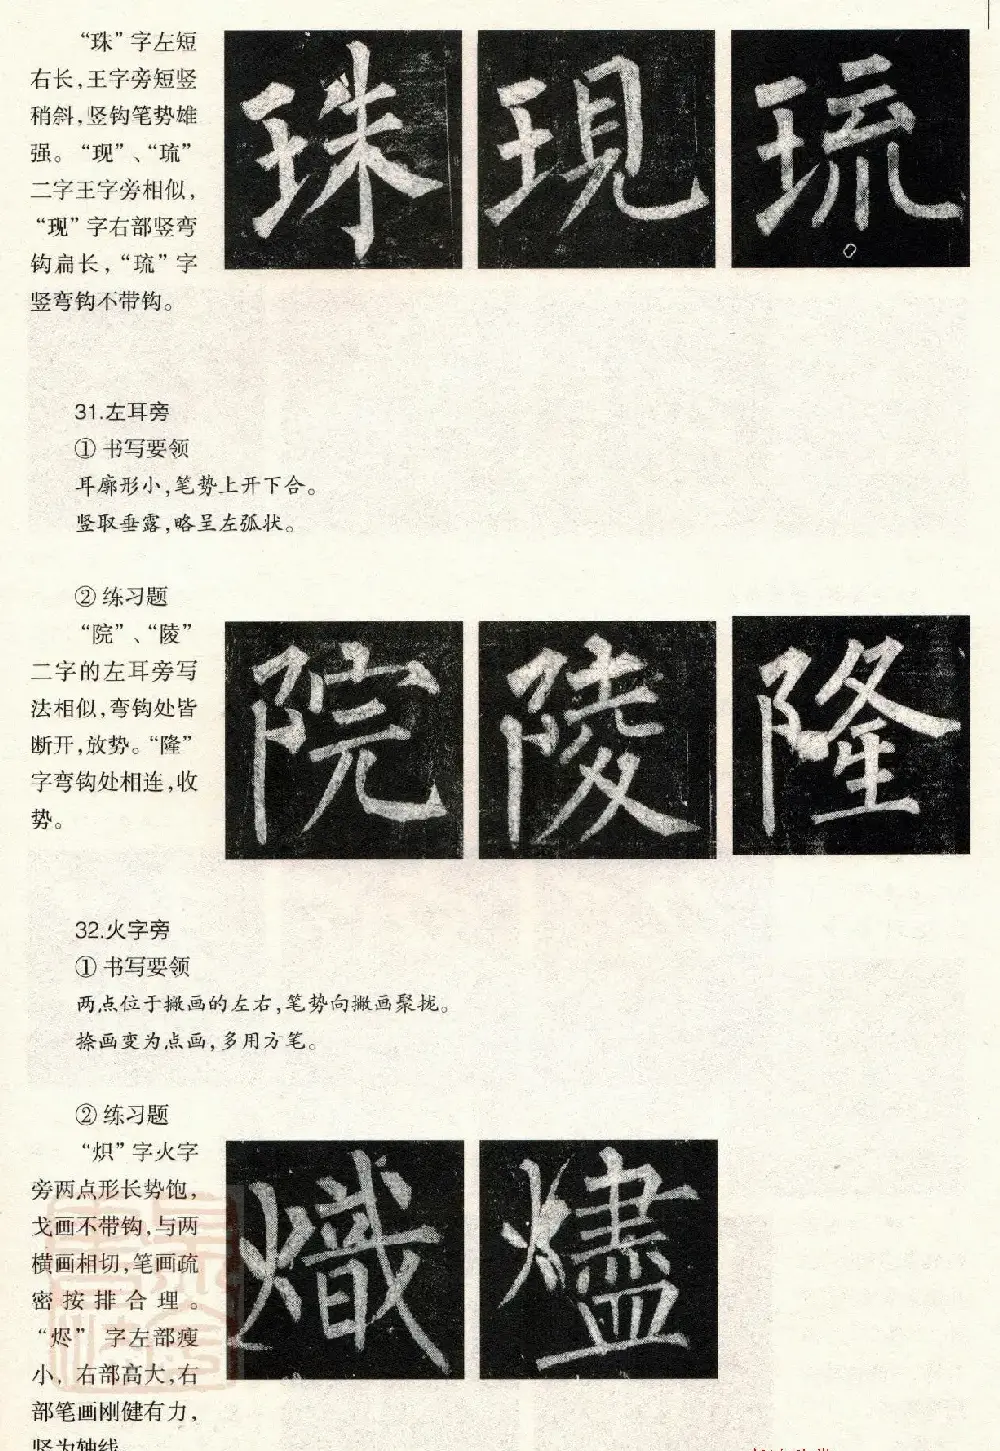 “珠”字左短
右长，王字旁短竖
稍斜，竖钩笔势雄
强。“现”、“琉”
二字王字旁相似，
“现”字右部竖弯
钩扁长，“琉”字
竖弯钩不带钩。
珠 現 琉
31.左耳旁
① 书写要领
耳廓形小，笔势上开下合。
竖取垂露，略呈左弧状。
② 练习题
“院”、“陵”
二字的左耳旁写
法相似，弯钩处皆
断开，放势。“隆”
字弯钩处相连，收
势。
院 陵 隆
32.火字旁
① 书写要领
两点位于撇画的左右，笔势向撇画聚拢。
捺画变为点画，多用方笔。
② 练习题
“炽”字火字
旁两点形长势饱，
戈画不带钩，与两
横画相切，笔画疏
密按排合理。
“烬”字左部瘦
小，右部高大，右
部笔画刚健有力，
竖为轴线
熾 燼